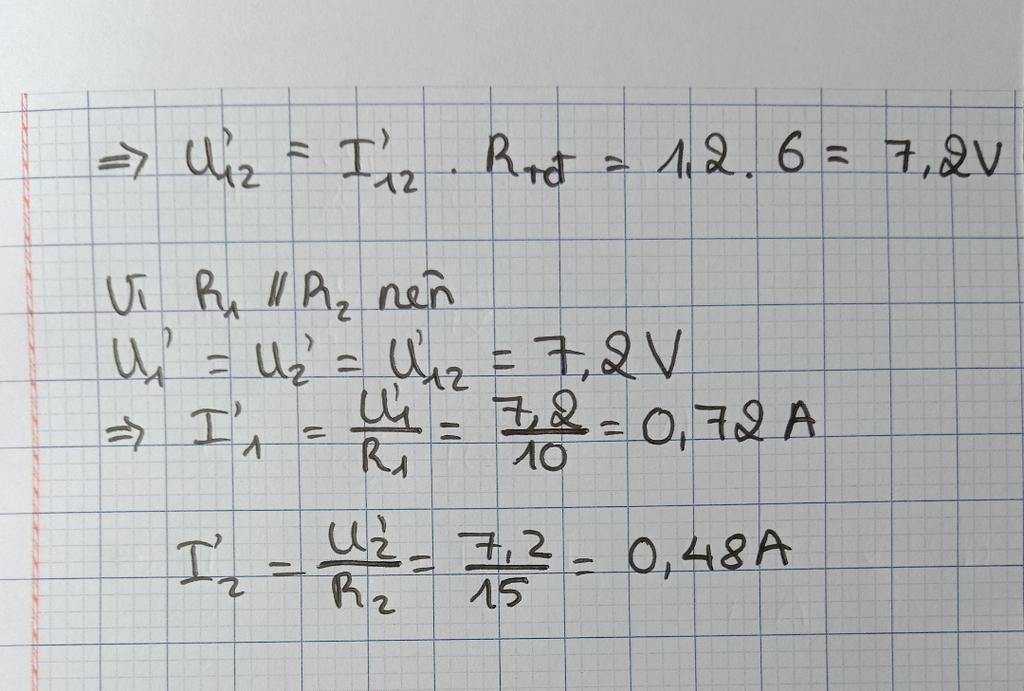 ⇒ U'₁₂ = I'₁₂ . Rₜđ = 1,2 . 6 = 7,2V
Vì R₁ // R₂ nên
U₁' = U₂' = U'₁₂ = 7,2V
⇒ I'₁ = U'₁/R₁ = 7,2/10 = 0,72 A
I'₂ = U'₂/R₂ = 7,2/15 = 0,48A